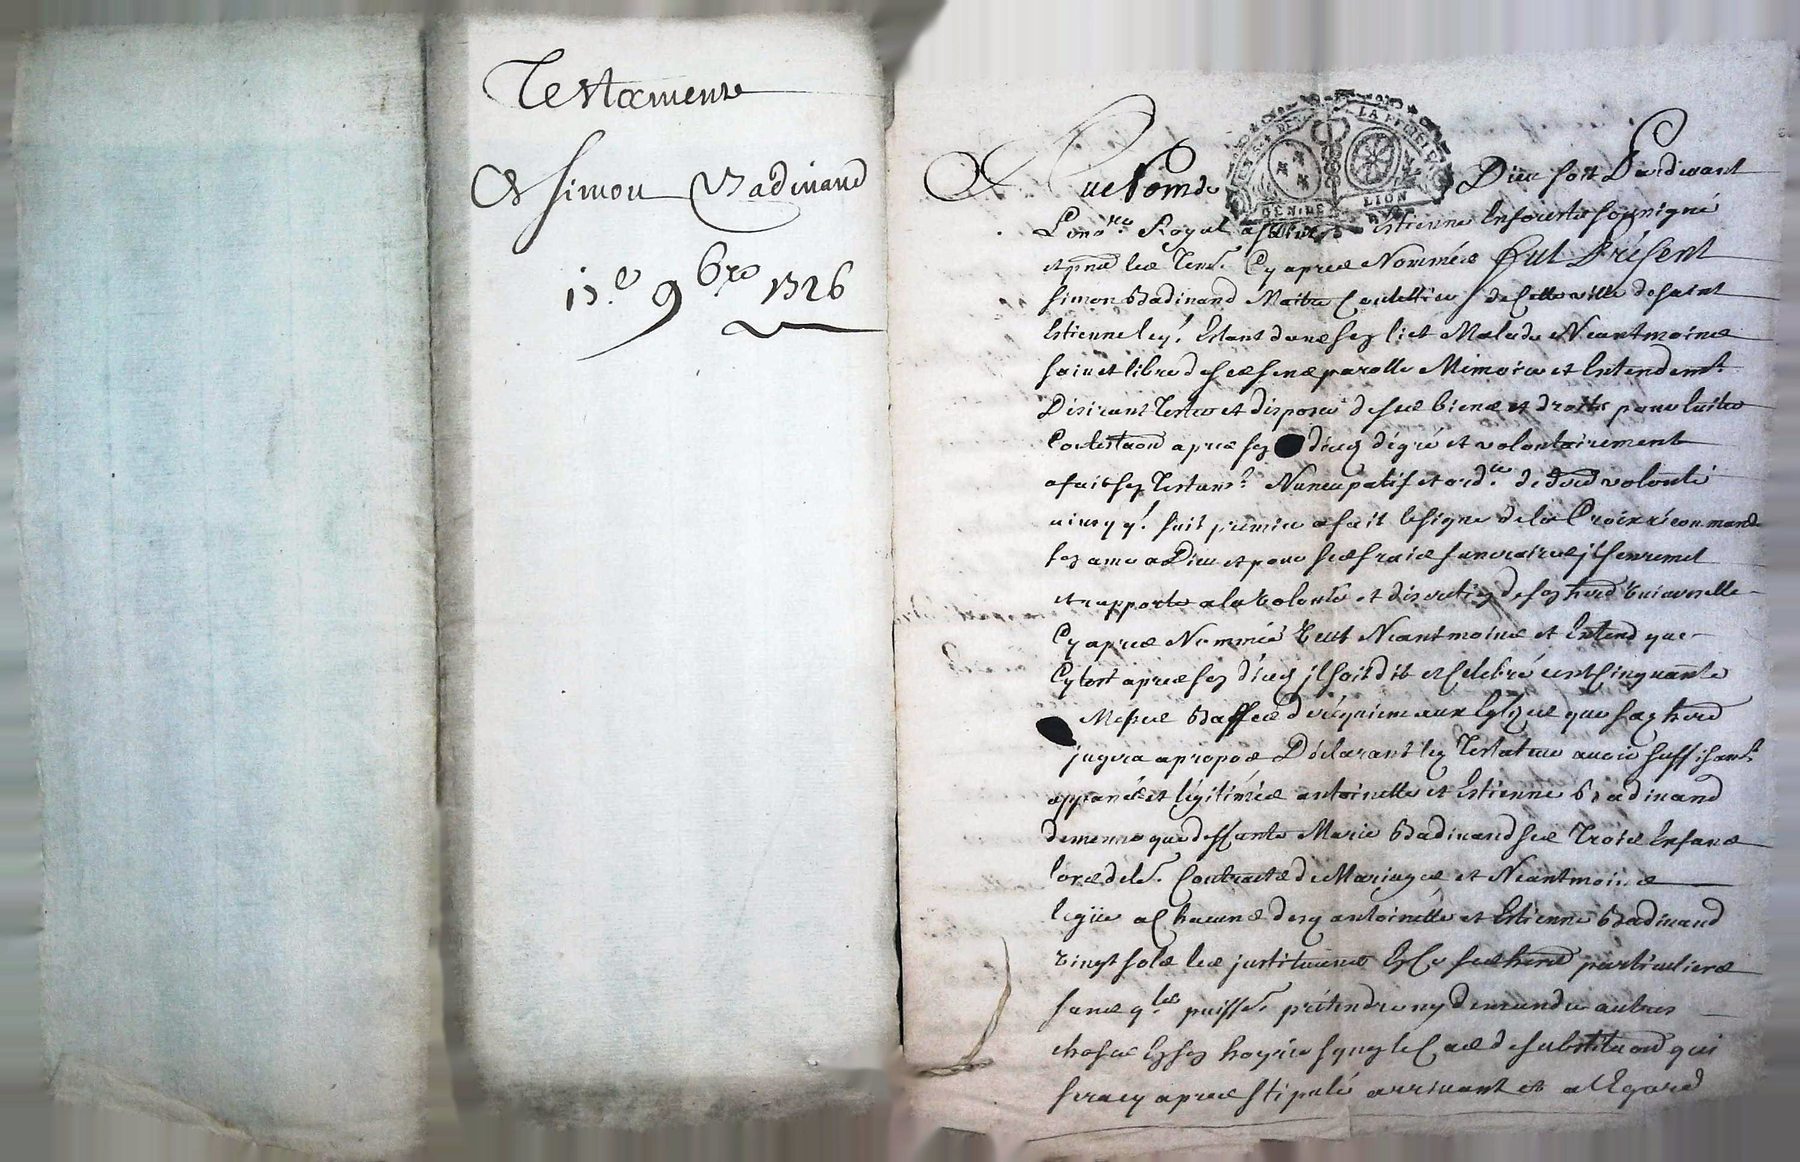 Testament
de simon Badinand
15.e 9bre 1726
LA FEUILLE
GEN. DE LION
Au Nom de Dieu soit Pardivant
Le no.re Royal a St Estienne en fourests soussigné
et pnts les Tem. Cy apres Nommés fut Présent
simon Badinand Maitre Coutellier de cette ville de saint
Estienne leql. Estant dans son lict Malade Neantmoins
sain et libre de ses sens parolle Mémoire et Entendemt
Désirant Tester et disposer de ses biens et droits pour Euiter
Contestaon apres son déces dégré et volontairement
a fait son Testamt. Nuncupatif et ord.re de dere volonté
ainsy q. suit premier a fait le signe de la Croix récommandé
son ame a Dieu et pour ses fraies funeraires il sen remet
et rapporte a la volonté et discretion de son herd Universelle
Cy apres Nommée Veut Neantmoins et Entend que
Cytost apres son déces il soit dit et Celebré cent Cinquante
Messes Basses de réquiem aux Eglizes que sa herd
jugera a propos Déclarant le Testateur auoir suffisamt
appanés et légitimés antoinette et Estienne Badinand
de meme que deffunte Marie Badinand ses Trois Enfans
lors de le. Contracts de Mariages et Neantmoins
legue a Chacuns desd antoinette et Estienne Badinand
Vingt sols les instituant En Ce ses herds particuliers
sans q.les puisse. prétendre ny demander autres
choses En son hoyrie synon le Cas de substituaon qui
sera cy apres stipulé arrivant et a l'Egard